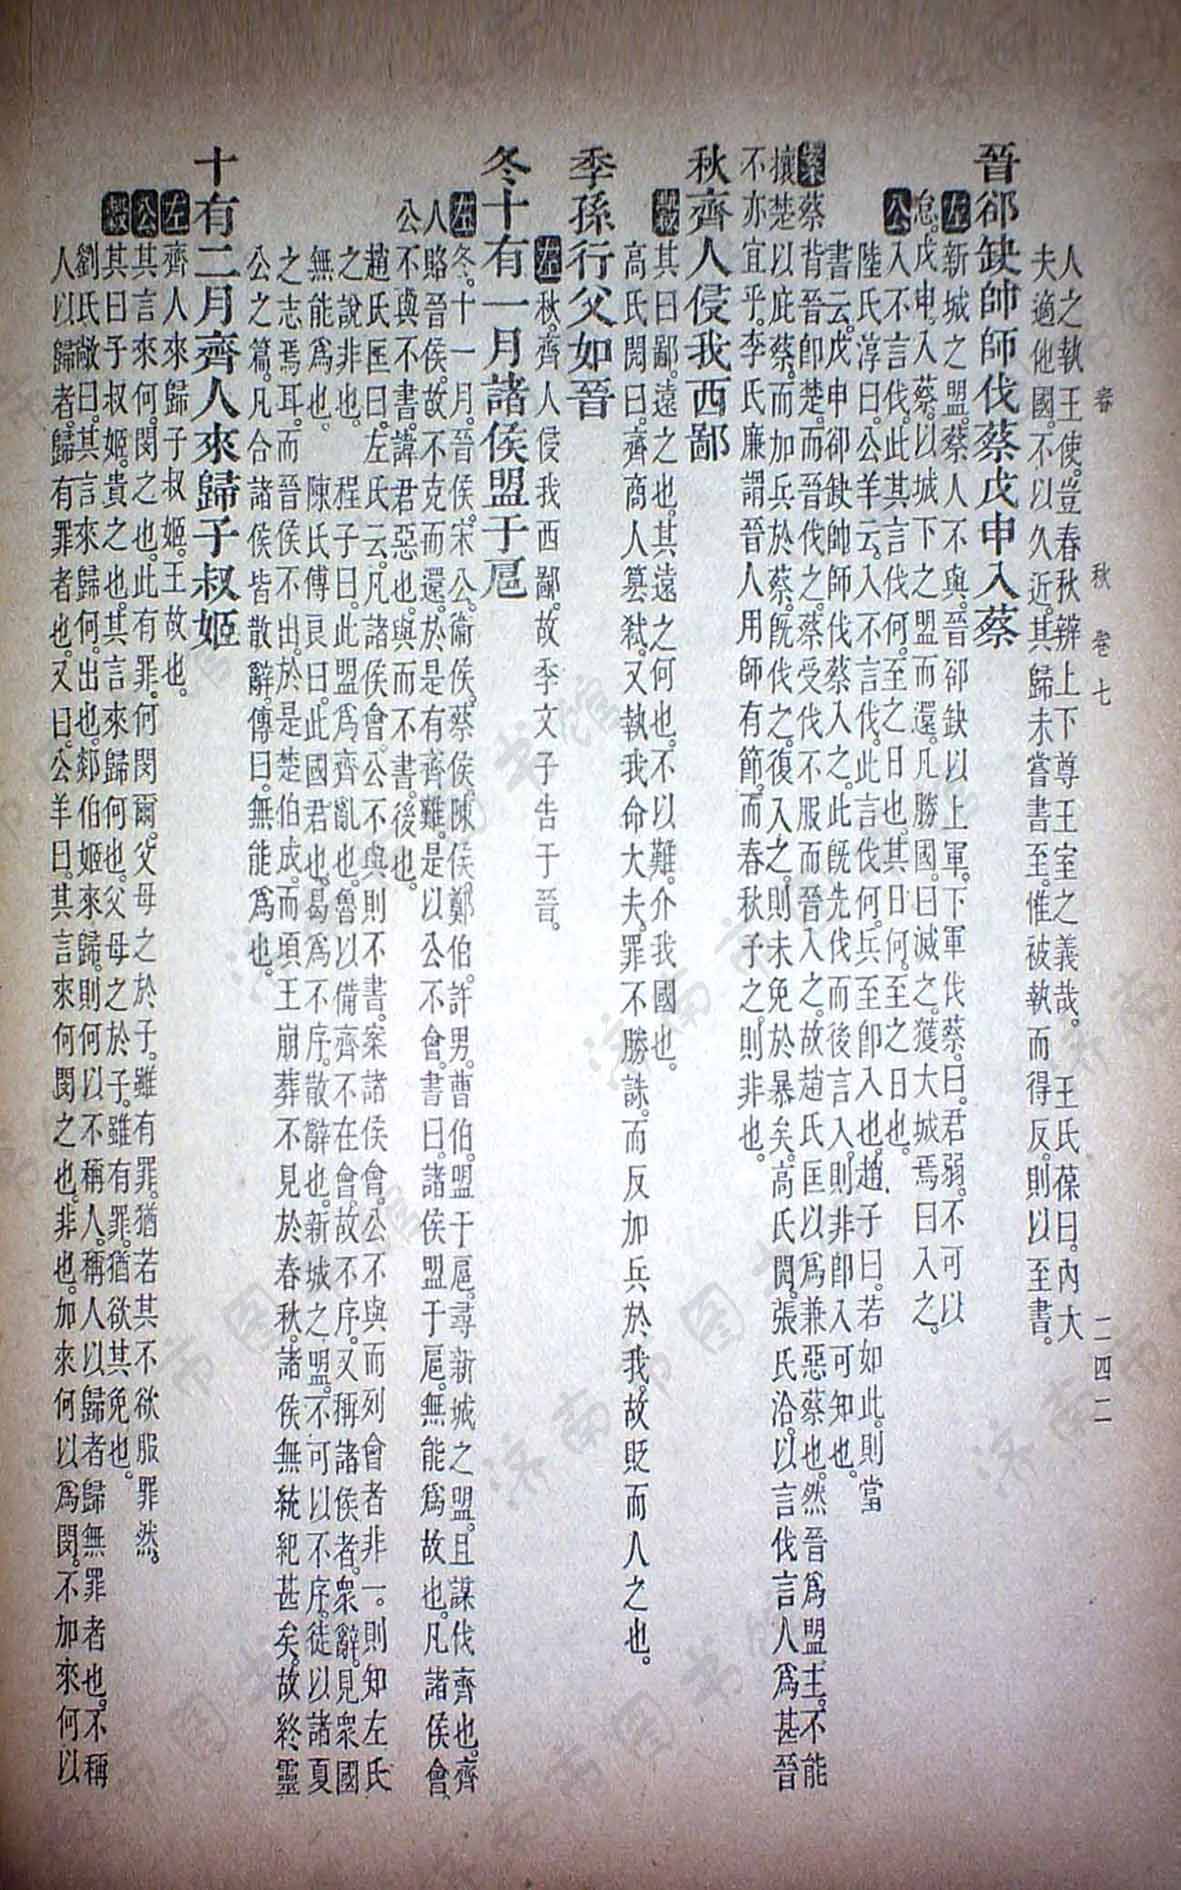 春　秋　卷七　二四二
人之執王使。豈春秋辨上下尊王室之義哉。　王氏葆曰。內大
夫適他國。不以久近。其歸未嘗書至。惟被執而得反。則以至書。
晉郤缺帥師伐蔡戊申入蔡
左新城之盟。蔡人不與。晉郤缺以上軍。下軍伐蔡。曰。君弱。不可以
怠。戊申。入蔡。以城下之盟而還。凡勝國。曰滅之。獲大城焉。曰入之。
公入不言伐。此其言伐何。至之日也。其日何。至之日也。
陸氏淳曰。公羊云。入不言伐。此言伐何。兵至卽入也。趙子曰。若如此。則當
書云。戊申郤缺帥師伐蔡入之。此旣先伐而後言入。則非卽入可知也。
案蔡背晉卽楚。而晉伐之。蔡受伐不服而晉入之。故趙氏匡以爲兼惡蔡也。然晉爲盟主。不能
攘楚以庇蔡。而加兵於蔡。旣伐之。復入之。則未免於暴矣。高氏閌。張氏洽。以言伐言入爲甚晉
不亦宜乎。李氏廉謂晉人用師有節。而春秋予之。則非也。
秋齊人侵我西鄙
穀其曰鄙。遠之也。其遠之何也。不以難。介我國也。
高氏閌曰。齊商人篡弒。又執我命大夫。罪不勝誅。而反加兵於我。故貶而人之也。
季孫行父如晉
左秋。齊人侵我西鄙。故季文子告于晉。
冬十有一月諸侯盟于扈
左冬。十一月。晉侯。宋公。衞侯。蔡侯。陳侯。鄭伯。許男。曹伯。盟于扈。尋新城之盟。且謀伐齊也。齊
人賂晉侯。故不克而還。於是有齊難。是以公不會。書曰。諸侯盟于扈。無能爲故也。凡諸侯會。
公不與不書。諱君惡也。與而不書。後也。
趙氏匡曰。左氏云。凡諸侯會。公不與則不書。案諸侯會。公不與而列會者非一。則知左氏
之說非也。　程子曰。此盟爲齊亂也。魯以備齊不在會。故不序。又稱諸侯者。衆辭。見衆國
無能爲也。　陳氏傅良曰。此國君也。曷爲不序。散辭也。新城之盟。不可以不序。徒以諸夏
之志焉耳。而晉侯不出。於是楚伯成。而頃王崩葬不見於春秋。諸侯無統紀甚矣。故終靈
公之篇。凡合諸侯皆散辭。傳曰。無能爲也。
十有二月齊人來歸子叔姬
左齊人來歸子叔姬。王故也。
公其言來何。閔之也。此有罪。何閔爾。父母之於子。雖有罪。猶若其不欲服罪然。
穀其曰子叔姬。貴之也。其言來歸何也。父母之於子。雖有罪。猶欲其免也。
劉氏敞曰。其言來歸何。出也。郯伯姬來歸。則何以不稱人。稱人以歸者歸無罪者也。不稱
人以歸者。歸有罪者也。又曰。公羊曰。其言來何閔之也。非也。加來何以爲閔。不加來何以